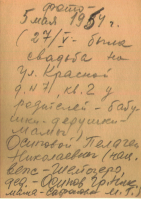 фото
5 мая 1954 г.
(27/V - была
свадьба на
ул. Красной
д. №1, кв. 2 у
родителей - бабу
шки - дедушки -
мамы.)
Осиповой Пелагеи
Николаевны
дед. - Осипов
мама -